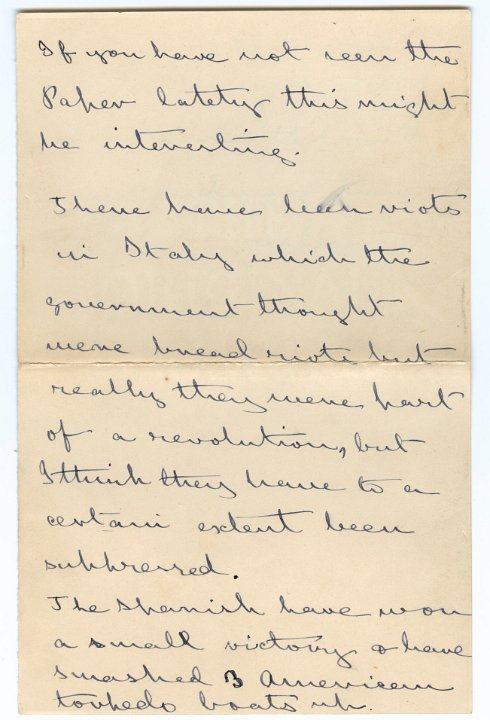 If you have not seen the
Paper lately this might
be interesting.
There have been riots
in Italy which the
government thought
were bread riots but
really they were part
of a revolution, but
I think they have to a
certain extent been
suppressed.
The Spanish have won
a small victory & have
smashed 3 American
torpedo boats up.